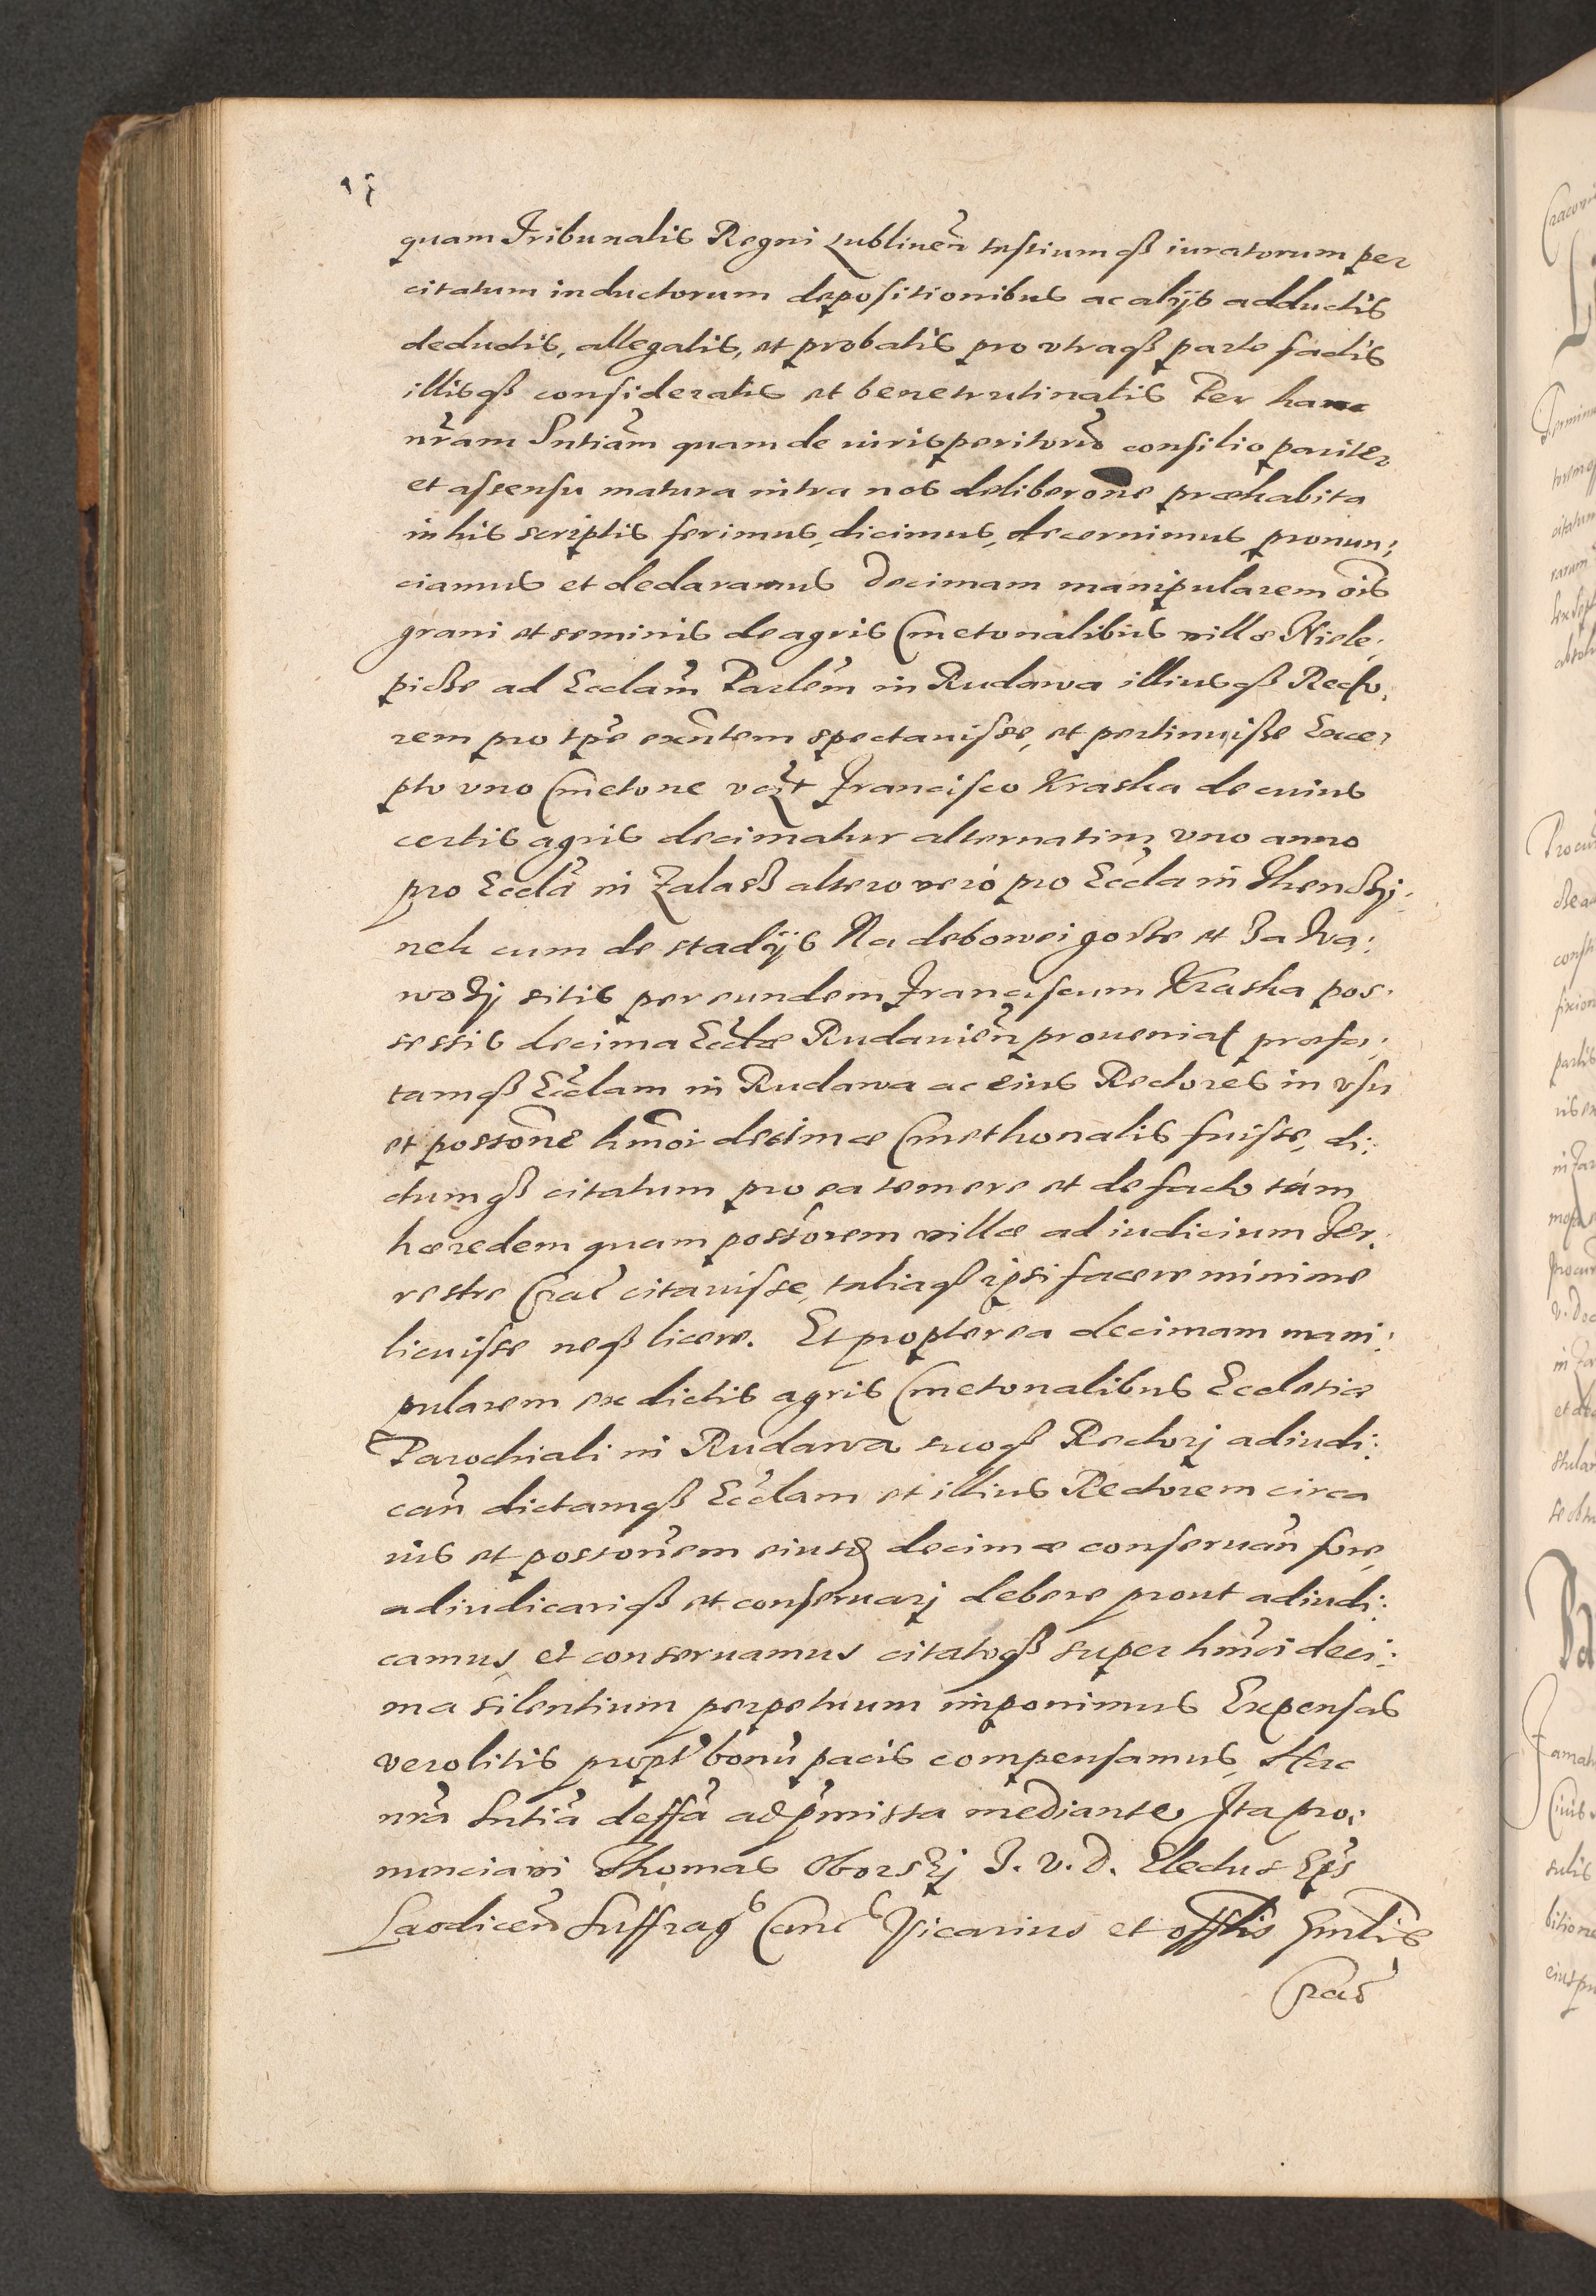 quam Tribunalis Regni Lublineñ testiumqß iuratorum per
citatum inductorum depositionibus ac alijs adductis
deductis, allegatis, et probatis pro vtraqß parte factis
illisqß consideratis et bene trutinatis Per hanc
nr̃am Sntiãm quam de iurisperitorũ consilio pariter
et assensu matura intra nos deliberõne præhabita
in his scriptis ferimus, dicimus, decernimus pronun:
ciamus et declaramus Decimam manipularem oĩs
grani et seminis de agris Cmetonalibus villæ Niele:
picße ad Ecclãm Parlẽm in Rudawa illiusqß Recto:
rem pro tp̃e exñtem spectauisse, et pertinuiße Exce:
pto vno Cmetone voc̃t Francisco Kraska de cuius
certis agris decimatur alternatim vno anno
pro Ecclã in Zalaß altero verò pro Eccla in Thenczy:
nek cum de stadijs Na debowei gorße et Za Dra:
wozij sitis per eundem Franciscum Kraska pos:
sessis decima Ecclæ Rudauieñ proueniat præfa:
tamqß Ecclam in Rudawa ac eius Rectores in vsu
et possõne hm̃oi decimæ Cmethonalis fuisse, di:
ctumqß citatum pro ea temere et de facto tùm
hæredem quam possõrem villæ ad iudicium Ter:
restre Crac̃ citauisse, taliaqß ipsi facere minime
licuisse neqß licere. Et propterea decimam mani:
pularem ex dictis agris Cmetonalibus Ecclesiæ
Parochiali in Rudawa suoqß Rectorj adiudi:
cañ dictamqß Ecclam et illius Rectorem circa
ius et possonẽm eiusd decimæ conseruañ fore,
adiudicariqß et conseruarj debere prout adiudi:
camus, et conseruamus citatoqß super hm̃oi deci:
ma silentium perpetuum imponimus Expensas
vero litis propt̃ bonũ pacis compensamus, Hac
nrã Sntiã deffã ad p̃missa mediante, Ita pro:
nunciaui Thomas Oborskj I. V. D. Electus Ep̃s
Laodiceñ Suffragꝰ Cancꝰ Vicarius et offlis Gnlis
Crac̃